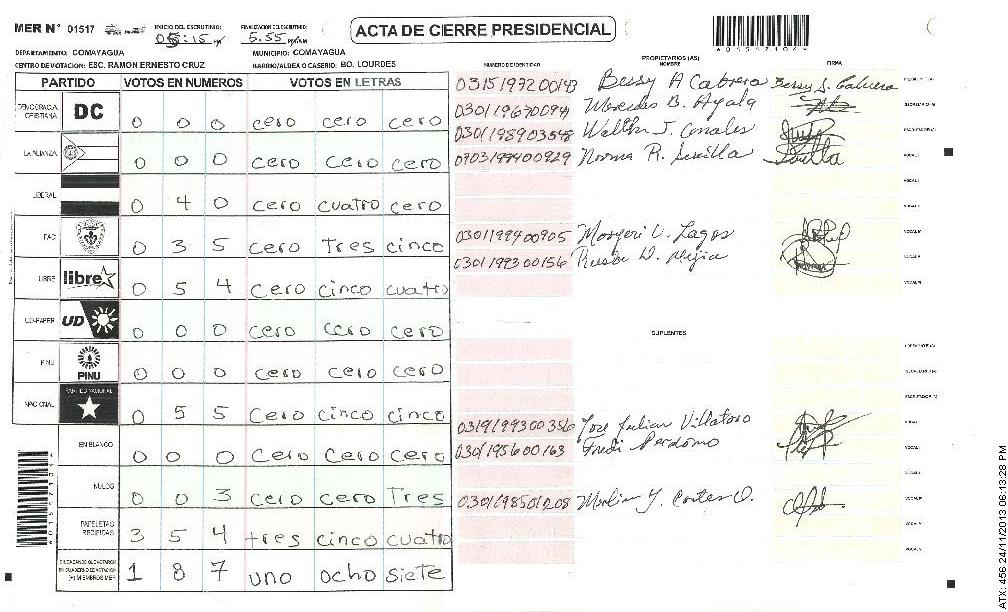 MER N° 01517 INICIO DEL ESCRUTINIO: 05:15 FINALIZACION DEL ESCRUTINIO: 5.55 ACTA DE CIERRE PRESIDENCIAL
DEPARTAMENTO: COMAYAGUA MUNICIPIO: COMAYAGUA
CENTRO DE VOTACION: ESC. RAMON ERNESTO CRUZ BARRIO/ALDEA O CASERIO: BO. LOURDES
PARTIDO VOTOS EN NUMEROS VOTOS EN LETRAS
DEMOCRACIA CRISTIANA DC 0 0 0 cero cero cero
LA ALIANZA 0 0 0 cero cero cero
LIBERAL 0 4 0 cero cuatro cero
PAC 0 3 5 cero Tres cinco
LIBRE libre 0 5 4 cero cinco cuatro
UD-FAPER UD 0 0 0 cero cero cero
PINU PINU 0 0 0 cero cero cero
NACIONAL PARTIDO NACIONAL 0 5 5 cero cinco cinco
EN BLANCO 0 0 0 cero cero cero
NULOS 0 0 3 cero cero Tres
PAPELETAS RECIBIDAS 3 5 4 tres cinco cuatro
(+) MIEMBROS MER 1 8 7 uno ocho siete
NUMERO DE IDENTIDAD PROPIETARIOS (AS) NOMBRE FIRMA
0315197200143 Bessy A Cabrera
B. Ayala
0301198903548 Walton J.
0703199400929 Norma R.
0301199400905 Lagos
0301199300156
SUPLENTES
0319199300356 Jose Julian Villatoro
0301195600163 Fredi Perdomo
0301198501208
ATX: 456 24/11/2013 06:13:28 PM